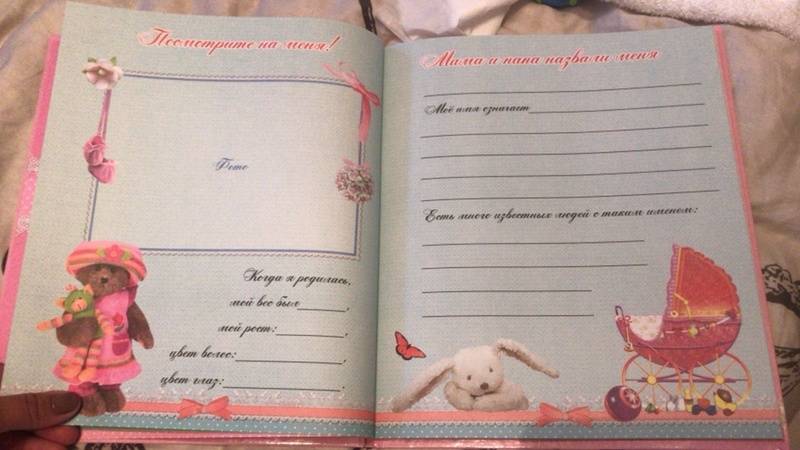 Посмотрите на меня!
Фото
Когда я родилась,
мой вес был______,
мой рост:__________,
цвет волос:______________,
цвет глаз:________________.
Мама и папа назвали меня
Моё имя означает
Есть много известных людей с таким именем: